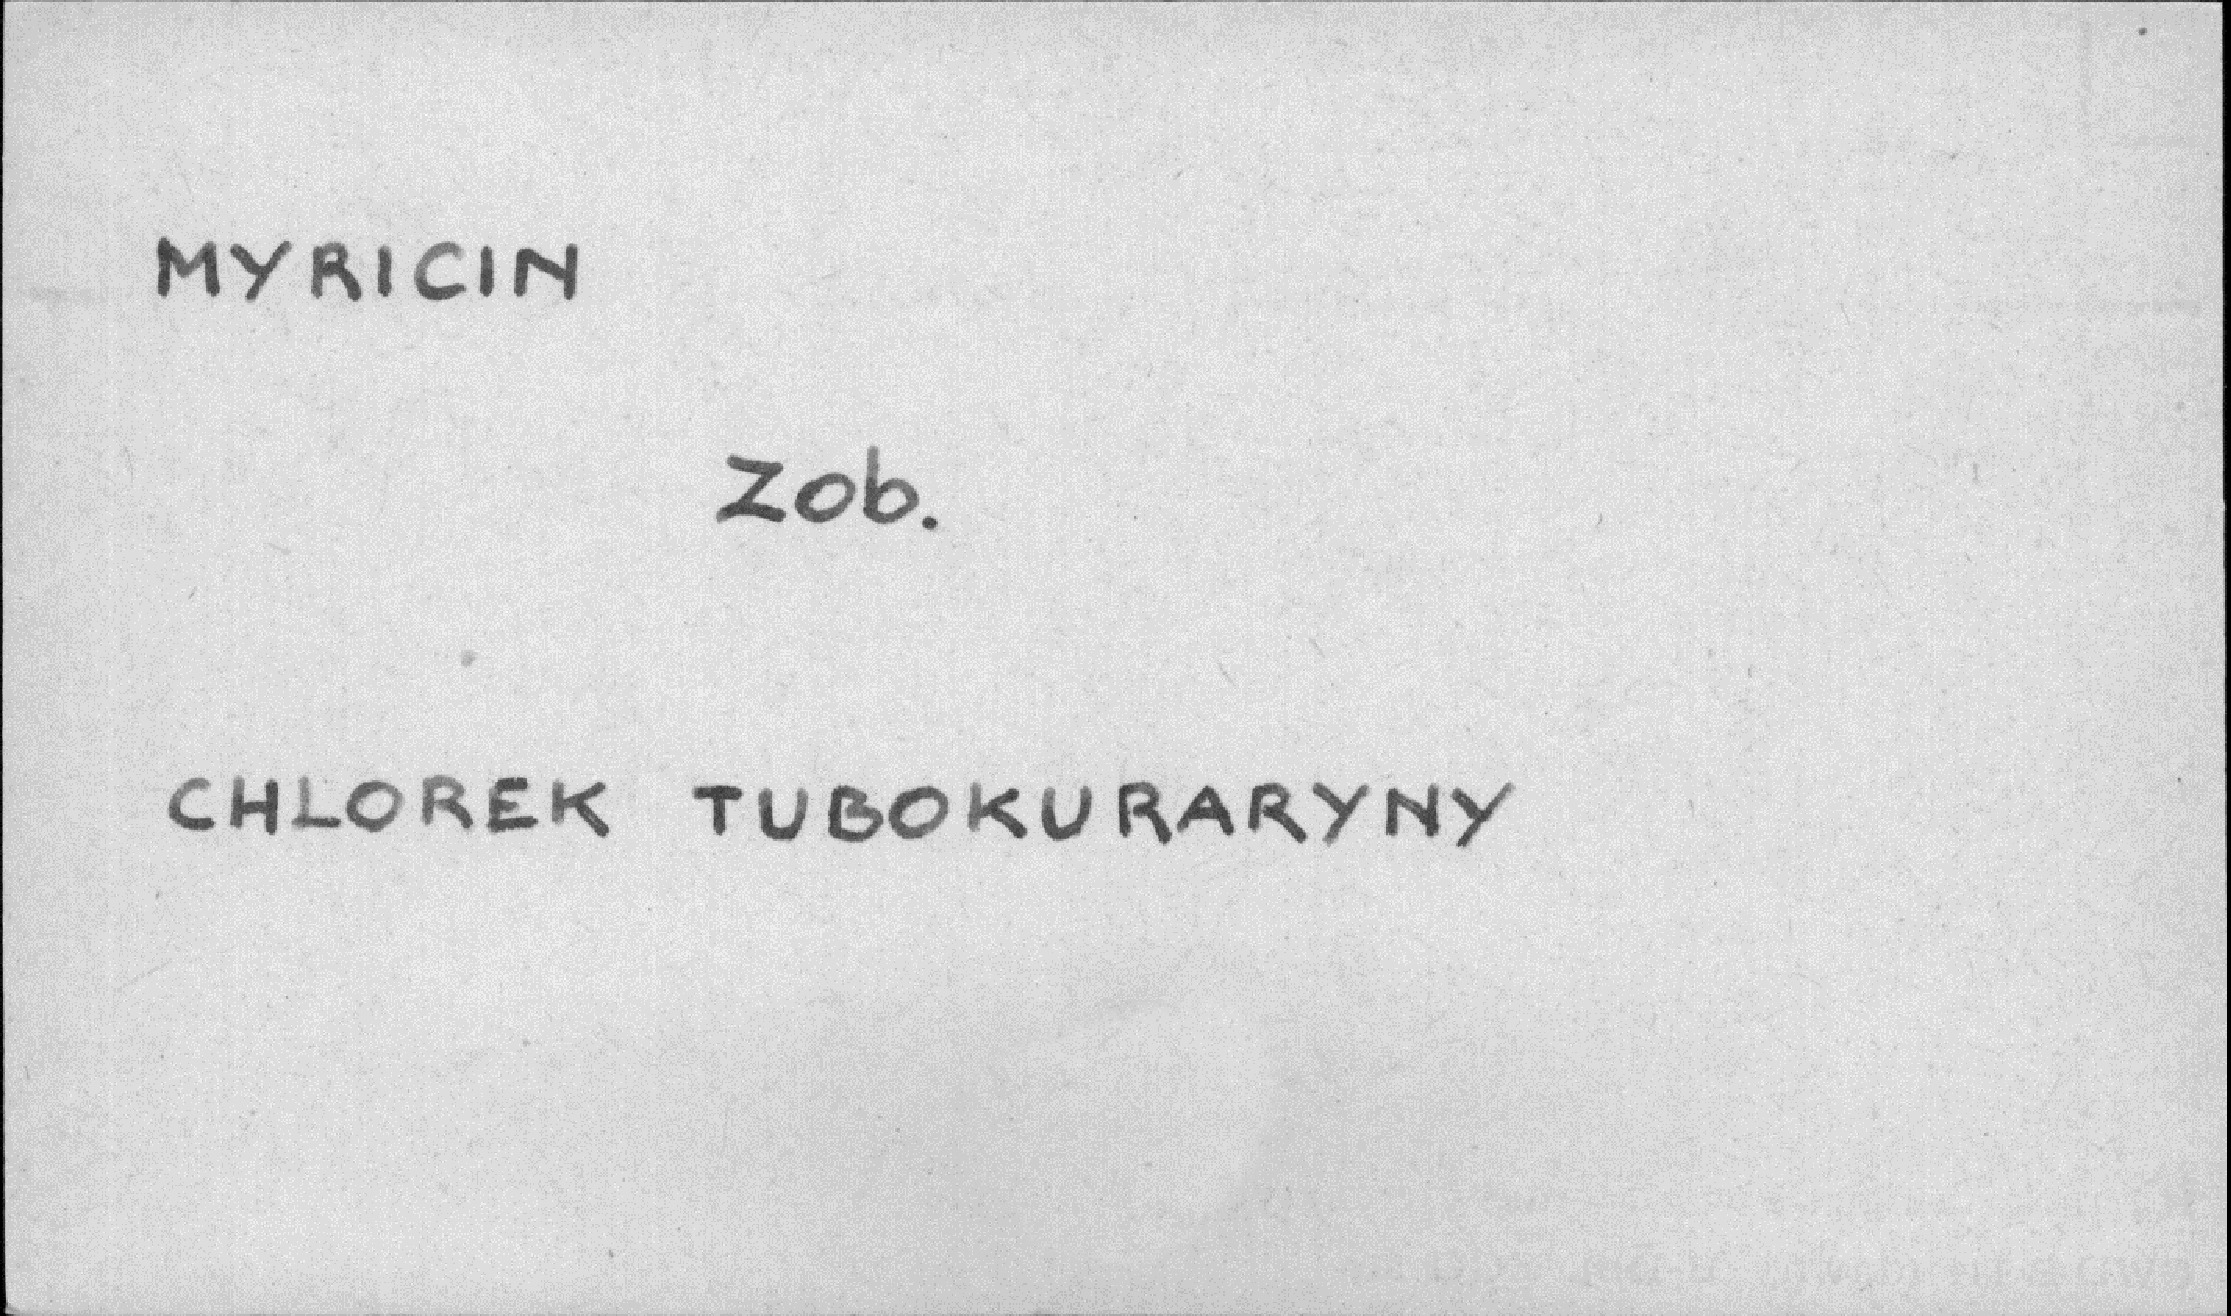 MYRICIN
Zob.
CHLOREK TUBOKURARYNY